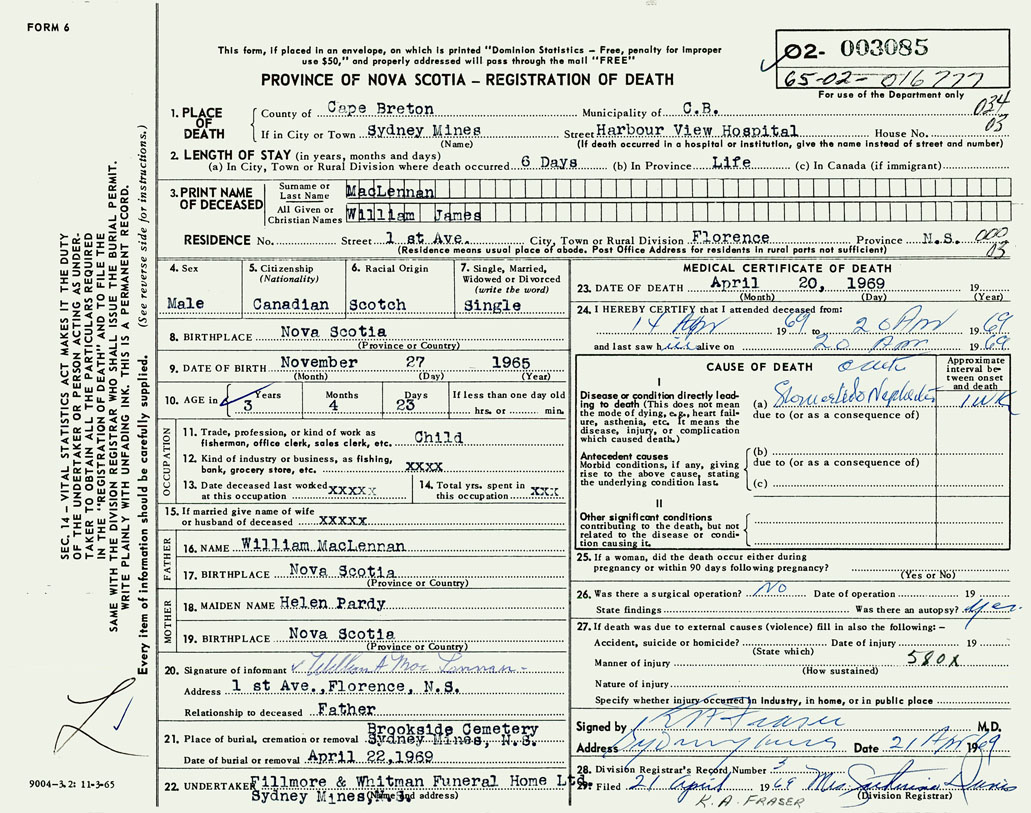 FORM 6
This form, if placed in an envelope, on which is printed "Dominion Statistics – Free, penalty for improper
use $50," and properly addressed will pass through the mail "FREE"
PROVINCE OF NOVA SCOTIA – REGISTRATION OF DEATH
02- 003085
65-02-016777
For use of the Department only
034
03
1. PLACE OF DEATH
County of Cape Breton Municipality of C.B.
If in City or Town Sydney Mines Street Harbour View Hospital House No.
(Name) (If death occurred in a hospital or institution, give the name instead of street and number)
2. LENGTH OF STAY (in years, months and days)
(a) In City, Town or Rural Division where death occurred 6 Days (b) In Province Life (c) In Canada (if immigrant)
3. PRINT NAME OF DECEASED
Surname or Last Name MacLennan
All Given or Christian Names William James
RESIDENCE No. Street 1 st Ave. City, Town or Rural Division Florence Province N.S.
000
03
(Residence means usual place of abode. Post Office Address for residents in rural parts not sufficient)
4. Sex
Male
5. Citizenship
(Nationality)
Canadian
6. Racial Origin
Scotch
7. Single, Married,
Widowed or Divorced
(write the word)
Single
8. BIRTHPLACE Nova Scotia
(Province or Country)
9. DATE OF BIRTH November 27 1965
(Month) (Day) (Year)
10. AGE in Years Months Days If less than one day old
3 4 23 hrs. or min.
OCCUPATION
11. Trade, profession, or kind of work as
fisherman, office clerk, sales clerk, etc. Child
12. Kind of industry or business, as fishing,
bank, grocery store, etc. xxxx
13. Date deceased last worked
at this occupation xxxxx
14. Total yrs. spent in
this occupation xxx
15. If married give name of wife
or husband of deceased xxxxx
FATHER
16. NAME William MacLennan
17. BIRTHPLACE Nova Scotia
(Province or Country)
MOTHER
18. MAIDEN NAME Helen Pardy
19. BIRTHPLACE Nova Scotia
(Province or Country)
20. Signature of informant William A Mac Lennan
Address 1 st Ave., Florence, N.S.
Relationship to deceased Father
21. Place of burial, cremation or removal Brookside Cemetery
Sydney Mines, N.S.
Date of burial or removal April 22,1969
22. UNDERTAKER Fillmore & Whitman Funeral Home Ltd.
Sydney Mines, N.S.
(Name and address)
MEDICAL CERTIFICATE OF DEATH
23. DATE OF DEATH April 20, 1969 19
(Month) (Day) (Year)
24. I HEREBY CERTIFY that I attended deceased from:
14 Apr 1969 to 20 Apr 1969
and last saw him alive on 20 Apr 1969
CAUSE OF DEATH
Approximate
interval be-
tween onset
and death
I
Disease or condition directly lead-
ing to death (This does not mean
the mode of dying, e.g., heart fail-
ure, asthenia, etc. It means the
disease, injury, or complication
which caused death.)
(a) 1 WK
due to (or as a consequence of)
Antecedent causes
Morbid conditions, if any, giving
rise to the above cause, stating
the underlying condition last.
(b)
due to (or as a consequence of)
(c)
II
Other significant conditions
contributing to the death, but not
related to the disease or condi-
tion causing it.
25. If a woman, did the death occur either during
pregnancy or within 90 days following pregnancy?
(Yes or No)
26. Was there a surgical operation? NO Date of operation 19
State findings Was there an autopsy? yes
27. If death was due to external causes (violence) fill in also the following: –
Accident, suicide or homicide? Date of injury 19
(State which)
Manner of injury 580X
(How sustained)
Nature of injury
Specify whether injury occurred in Industry, in home, or in public place
Signed by K A Fraser M.D.
Address Sydney Mines Date 21 Apr 1969
28. Division Registrar's Record Number 3
29. Filed 21 April 1969 Mrs. Davis
(Division Registrar)
K. A. FRASER
SEC. 14 – VITAL STATISTICS ACT MAKES IT THE DUTY
OF THE UNDERTAKER OR PERSON ACTING AS UNDER-
TAKER TO OBTAIN ALL THE PARTICULARS REQUIRED
IN THE "REGISTRATION OF DEATH" AND TO FILE THE
SAME WITH THE DIVISION REGISTRAR WHO SHALL ISSUE THE BURIAL PERMIT.
WRITE PLAINLY WITH UNFADING INK. THIS IS A PERMANENT RECORD.
Every item of information should be carefully supplied. (See reverse side for instructions.)
9004-3.2: 11-3-65